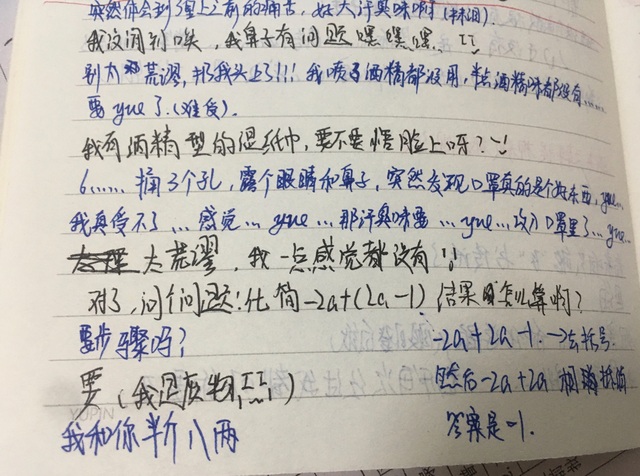 突然体会到理上之前的痛苦，好大汗臭味啊(抹泪)
我没闻到唉，我鼻子有问题嘿嘿嘿。
别太荒谬，我头上了!!! 我喷了酒精都没用，半点酒精味都没有……
要yue了.(难受).
我有酒精型的湿纸巾，要不要捂脸上呀?
6……捅了个孔，露个眼睛和鼻子，突然发现口罩真的是个好东西，yue…
我真受不了…感觉…yue…那汗臭味要…yue…攻入口罩里了…yue…
太荒谬，我一点感觉都没有
对了，问个问题:化简-2a+(2a-1) 结果怎么算啊?
要步骤吗?
-2a+2a-1. →去括号.
要(我是废物)
然后-2a+2a 相抵消
我和你半斤八两
答案是-1.
YUPIN